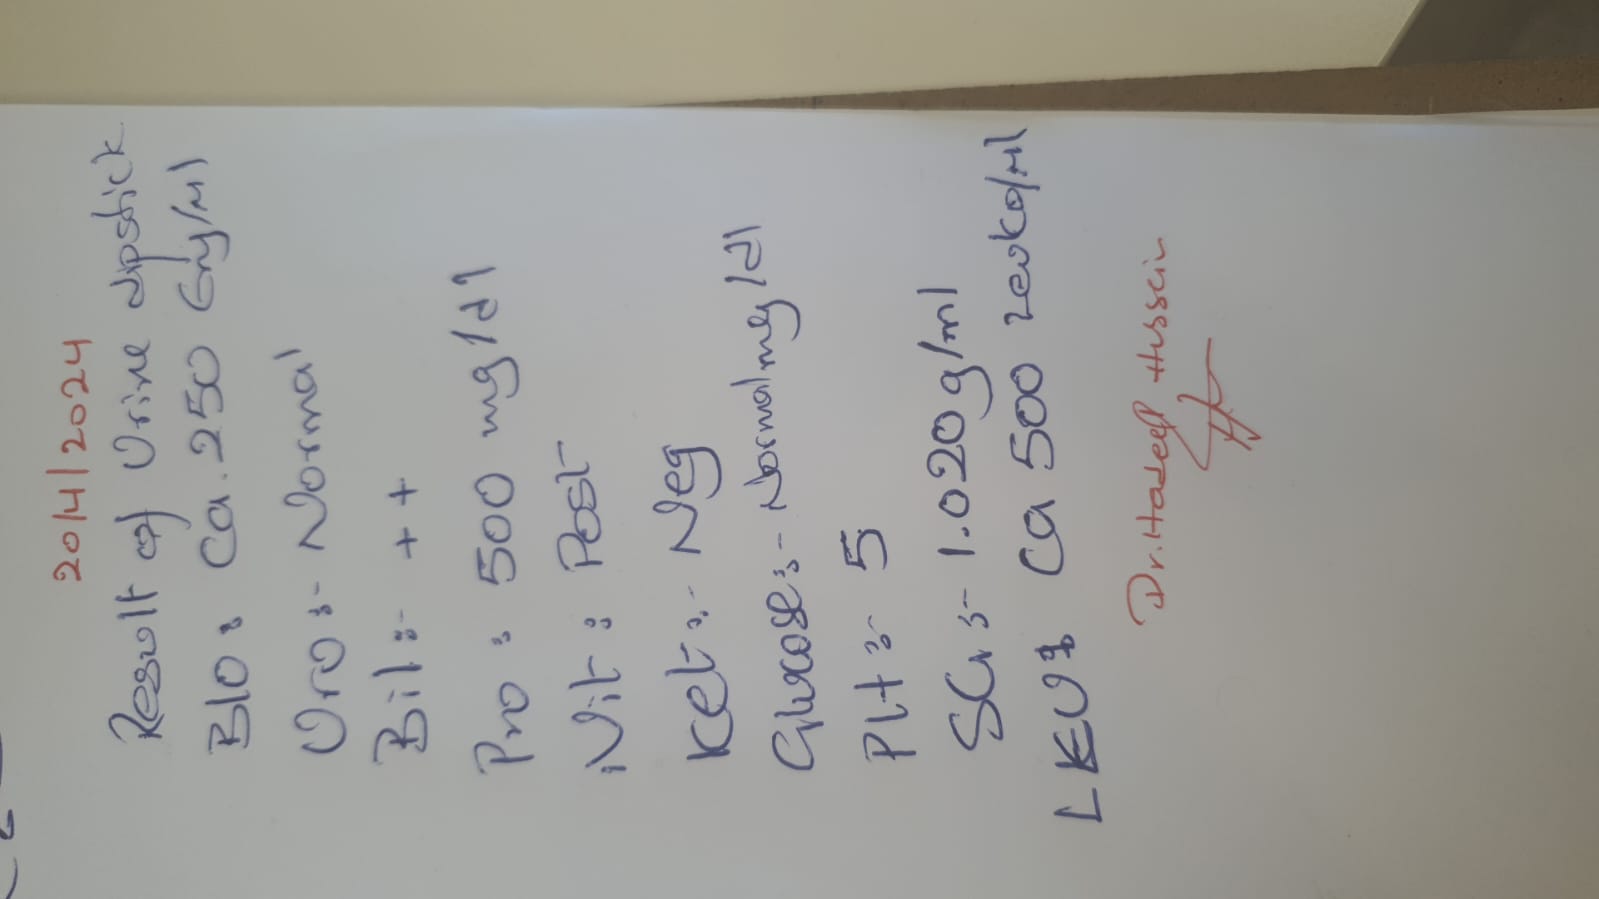 20/4/2024
Result of Urine dipstick
Blo: Ca. 250 Ery/Ml
Uro:- Normal
Bil:- ++
Pro: 500 mg/dl
Nit: Post
Ket:- Neg
Glucose:- Normal mg/dl
PH:- 5
SG:- 1.020 g/ml
LEU: Ca 500 Leuko/Ml
Dr. Hadeel Hussein